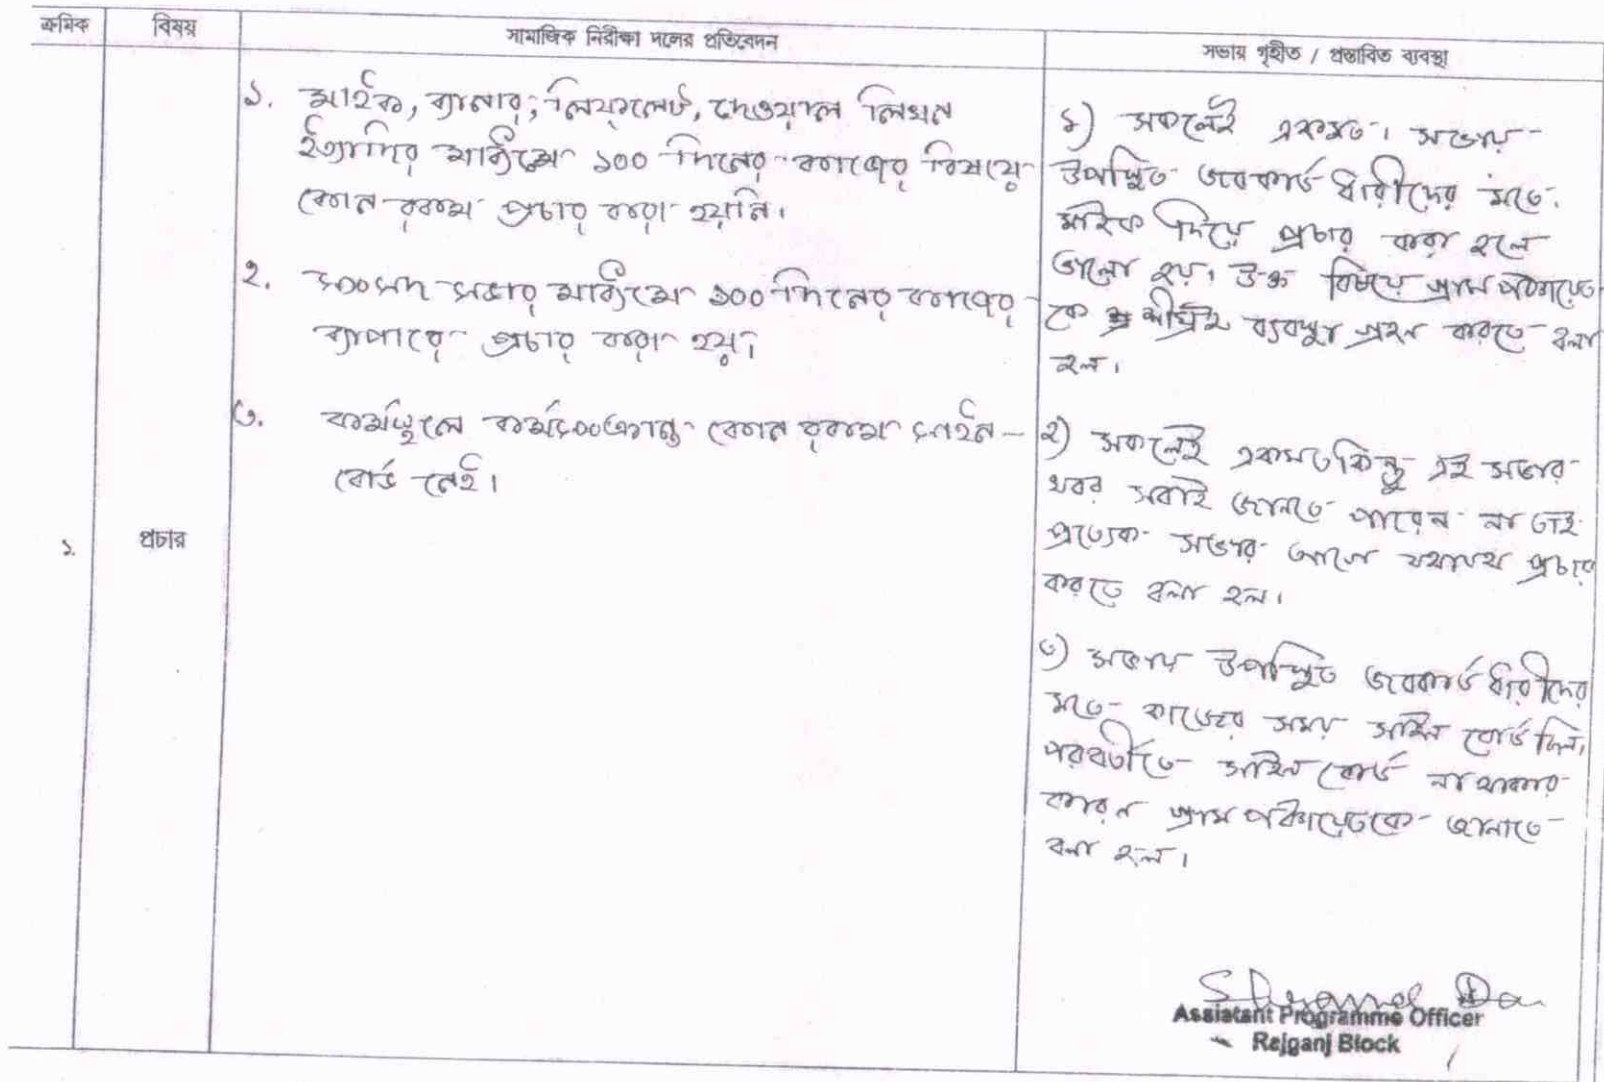 ক্রমিক
বিষয়
সামাজিক নিরীক্ষা দলের প্রতিবেদন
সভায় গৃহীত / প্রস্তাবিত ব্যবস্থা
১. মাইক, ব্যানার, লিফলেট, দেওয়াল লিখন
ইত্যাদির মাধ্যমে ১০০ দিনের কাজের বিষয়ে
কোন রকম প্রচার করা হয়নি।
২. সংসদ সভার মাধ্যমে ১০০ দিনের কাজের
ব্যাপারে প্রচার করা হয়।
৩. কর্মস্থলে কর্মসংক্রান্ত কোন রকম সাইন-
বোর্ড নেই।
১.
প্রচার
১) সকলেই একমত। সভায়
উপস্থিত জবকার্ড ধারীদের মতে
মাইক দিয়ে প্রচার করা হলে
ভালো হয়। উক্ত বিষয়ে গ্রাম পঞ্চায়েত
কে শীঘ্রই ব্যবস্থা গ্রহন করতে বলা
হল।
২) সকলেই একমত কিন্তু এই সভার
খবর সবাই জানতে পারেন না তাই
প্রত্যেক সভার আগে যথাযথ প্রচার
করতে বলা হল।
৩) সভায় উপস্থিত জবকার্ড ধারীদের
মতে কাজের সময় সাইন বোর্ড ছিল,
পরবর্তীতে সাইন বোর্ড না থাকার
কারন গ্রাম পঞ্চায়েতকে জানাতে
বলা হল।
Assistant Programme Officer
Rajganj Block